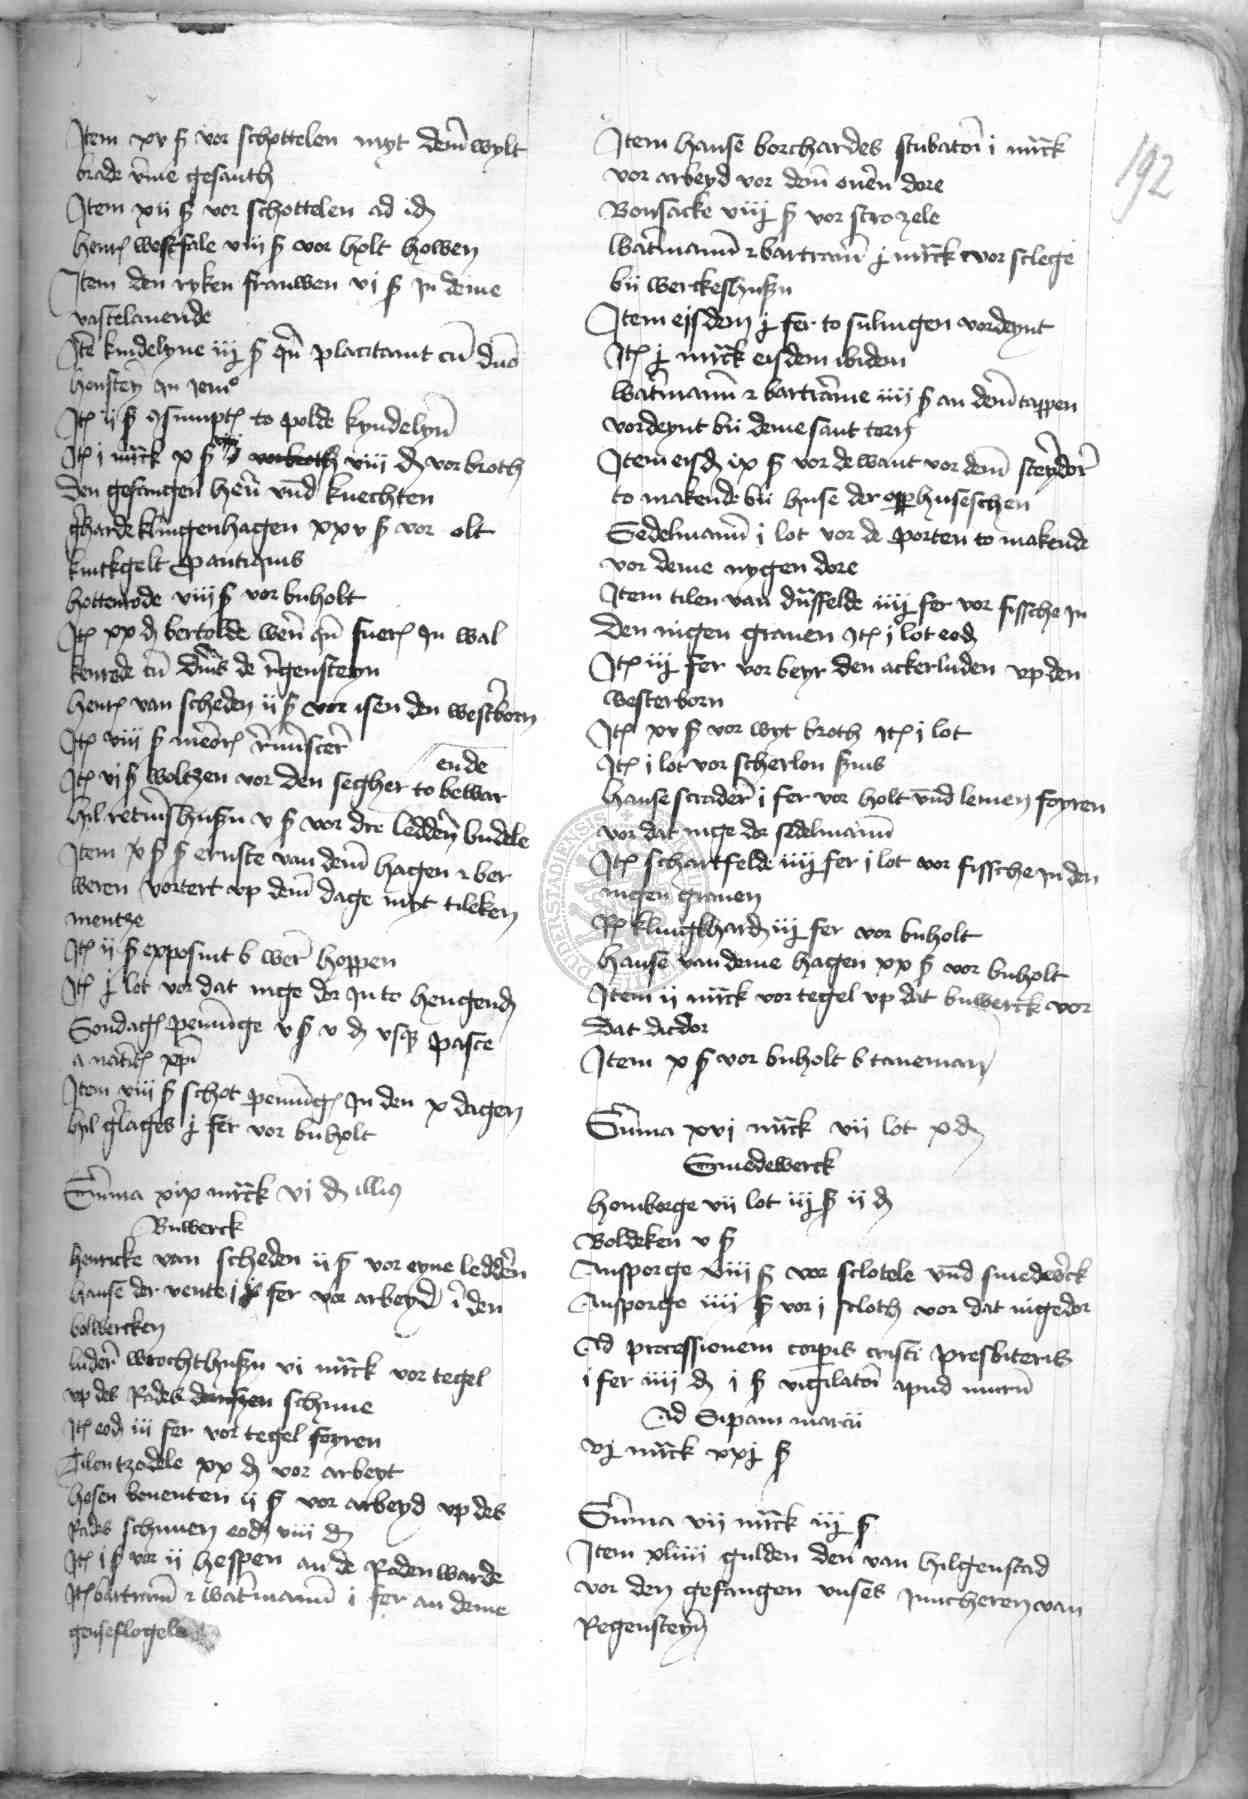 Item xv ß vor schottelen myt dem̄ wylt
brade vm̄e gesanth
Item xii ß vor schottelen ad id
henr westfale viii ß vor holt howen
Item den ryken frauwen vi ß in deme
vastelauende
Itē kindelyne iij ß qn̄ placitauit cū dn̄o
honsteyn an
Itē ii ß sumpt to polde kyndelyn̄
Itē i mrck x ß vorbroth viii d vor broth
den gefangen hern̄ vnd knechten
gherharde klingenhagen xxv ß vor olt
kuckgelt pantquis
hottenrode viii ß vor buholt
Itē xx d bertolde wern̄ qn̄ fuer in wal
kenrede cū dn̄is de regensteyn
henr van scheden ii ß vor isen den westerborn
Itē viii ß
ende
Itē vi ß woltzen vor den segher to bewar
hil retmshuszn v ß vor dre leddern budele
Item x ß ß ernste van dem̄ hagen ꝛ ber
weren vortert vp dem̄ dage myt tileken
mentze
Itē ii ß exposuit b wer hoppen
Itē j lot vor dat nige dor in to hengend
Sondages penni̅ge v ß v d vsq pasce
a nativ xpi
Item viii ß schot penni̅g in den x dagen
hil gerlages j fer vor buholt
Sūma xix mrck vi d illius
Buwerck
henricke van scheden ii ß vor eyne leddern
hanse der vente i fer vor arbeyd i den
bolwercken
luder wrochthuszn vi mrck vor tegel
vp des Rades schune
Itē eod iii fer vor tegel foyren
Tilen tzodele xx d vor arbeyt
hesen bouenten ii ß vor arbeyd vp des
Rades schunen eod viii d
Itē i ß vor ii hespen an de Radenwarde
Itē bartram̄ ꝛ watermann̄ i fer an deme
genseflogel
192
Item hanse borchardes stubatori i mrck
vor arbeyd vor dem̄ ouern dore
Bonsacke viij ß vor strozele
watermann̄ ꝛ bartram̄ j mrck vor sclege
bii werckeshusn
Item eisdem j fer to sulingen vordeynt
Itē j mrck eisdem ibidem
watermann̄ ꝛ bartrame iiij ß an dem̄ tappen
vordeynt bii deme sant torn
Item eisd ix ß vor de want vor dem̄ steyndor
to makende bii huse der opphuseschen
Sedelmann̄ i lot vor de porten to makende
vor deme nygen dore
Item tilen van dusffelde iiij fer vor fissche in
den nigen grauen Itē i lot eod
Itē iij fer vor beyr den ackerluden vp den
westerborn
Itē xv ß vor wyt broth Itē i lot
Itē i lot vor scherlon
hanse scrader i fer vor holt vnd lemen foyren
vor dat nige dor sedelmann̄
Itē schartfelde iiij fer i lot vor fissche in den
nigen grauen
klingkhard iij fer vor buholt
hanse van deme hagen xx ß vor buholt
Item ii mrck vor tegel vp dat buwerck vor
dat
Item x ß vor buholt b taneman
Sūma xvi mrck vii lot x d
Smedewerck
homborge vii lot iij ß ii d
Boldeken v ß
Ansporge viii ß vor sclotele vnd smedewerck
Ansporge iiii ß vor i scloth vor dat nigedor
Ad processionem corporis cristi presbiteris
i fer iiii d i ß vigilatori apud murū
Ad Sipam marcii
vj mrck xxj ß
Sūma vii mrck iij ß
Item xliiii gulden den van hilgenstad
vor den gefangen vnses iuncheren van
Regensteyn